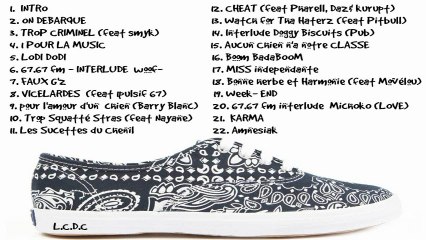 1. INTRO
2. ON DEBARQUE
3. TROP CRIMINEL (feat smyk)
4. 1 POUR LA MUSIC
5. LODI DODI
6. 67.67 fm - INTERLUDE Woof-
7. FAUX G'z
8. VICELARDES (feat Ipulsif 67)
9. pour l'amour d'un chien (Barry Blanc)
10. Trop Squatté Stras (feat Nayane)
11. Les Sucettes du Chenil
12. CHEAT (feat Pharell, Daz & Kurupt)
13. Watch for Tha Haterz (feat Pitbull)
14. Interlude Doggy Biscuits (Pub)
15. Aucun Chien n'a notre CLASSE
16. Boom BadaBooM
17. MISS independante
18. Bonne herbe et Harmonie (feat Movélou)
19. Week- END
20. 67.67 fm interlude Michoko (LOVE)
21. KARMA
22. Amnesiak
L.C.D.C